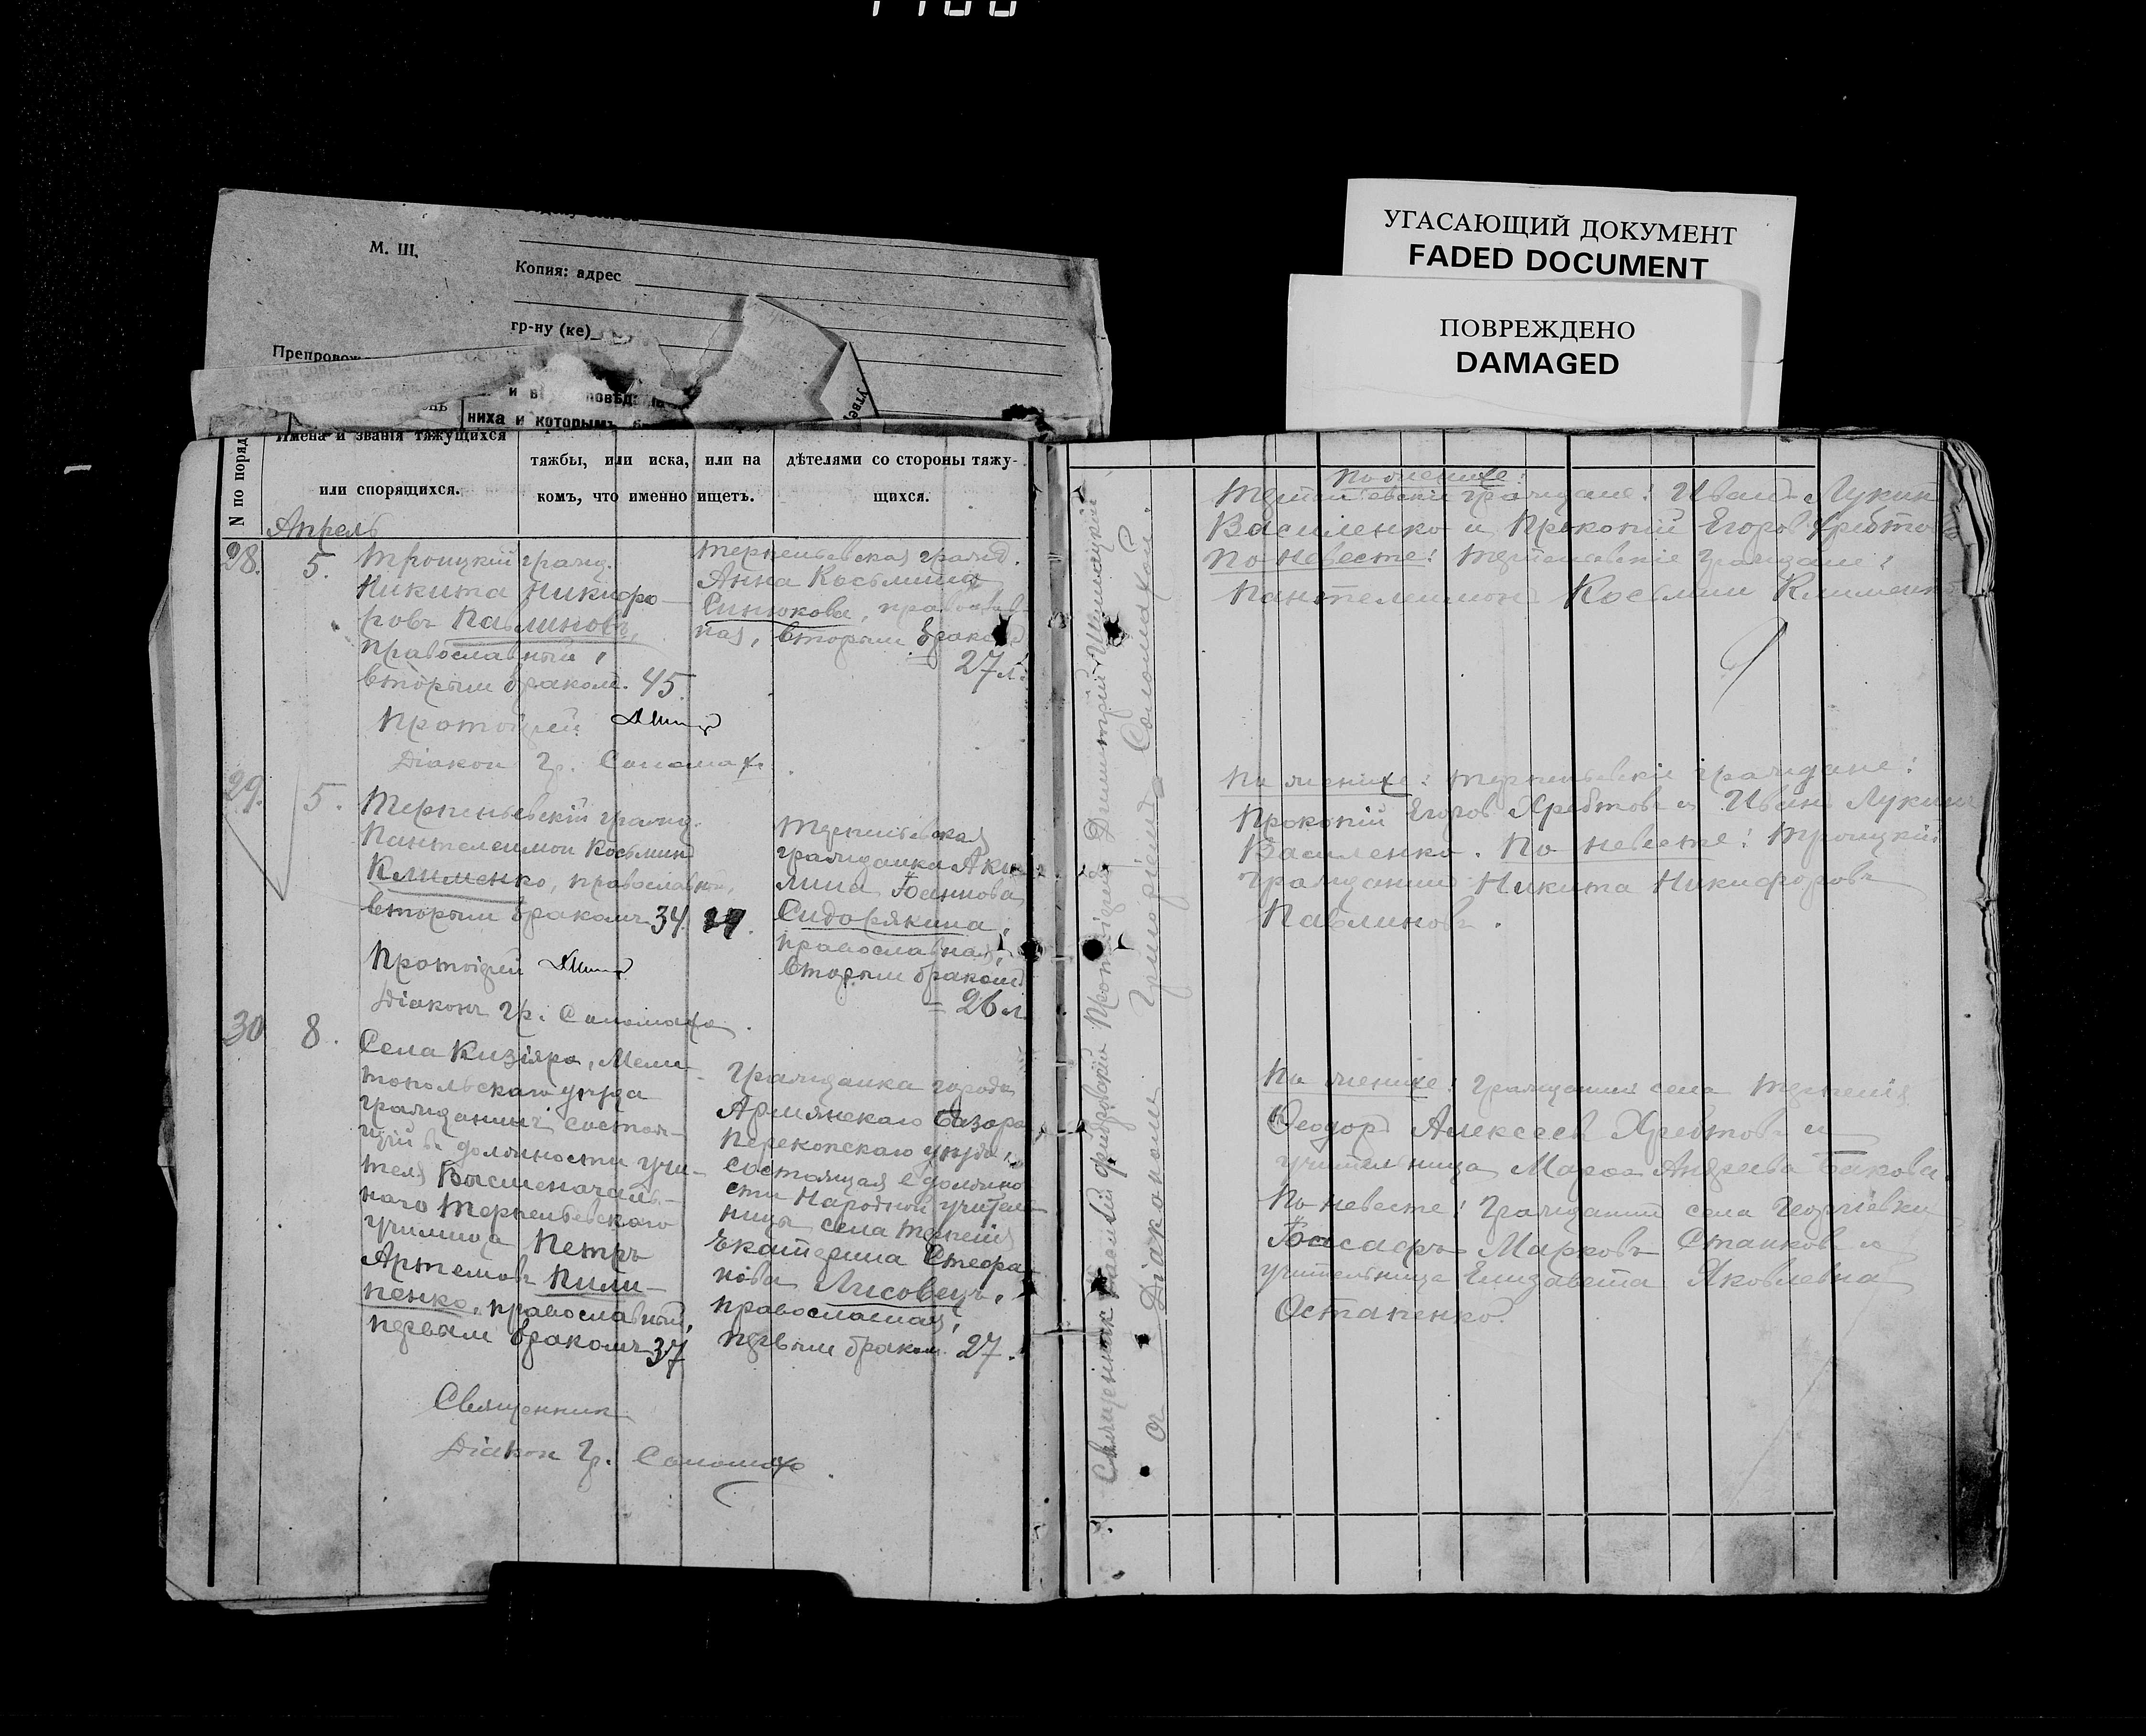 УГАСАЮЩИЙ ДОКУМЕНТ
FADED DOCUMENT
ПОВРЕЖДЕНО
DAMAGED
М. Ш.
Копия: адрес
гр-ну (ке)
ниха и которымъ
N по поряд
Имена и званія тяжущихся
или спорящихся.
тяжбы, или иска, или на
комъ, что именно ищетъ.
дѣтелями со стороны тяжу-
щихся.
Апрель
28.
5.
Троицкій гражд.
Никита Никифо-
ровъ Павлиновъ,
православный,
вторым браком. 45.
Протоіерей
Діакон Гр. Соломаха
Терпеньевская гражд.
Анна Косьмина
Синюкова, православ-
ная, вторым браком
27 л.
29.
5.
Терпеньевскій гражд.
Пантелеимон Косьмин
Клименко, православный,
вторым бракомъ 34.
Протоіерей
Діаконъ Гр. Соломаха.
Терпеньевская
гражданка Аки-
лина
православная,
вторым браком
= 26 л
30
8.
Села Кизіяра, Мели-
топольскаго уезда
гражданинъ состоя-
щій въ должности учи-
теля
наго Терпеньевскаго
училища Петръ
Артемовъ Пили-
пенко, православный,
первым бракомъ 37
Гражданка города
Армянскаго Базара
Перекопскаго уезда,
состоящая в должно
сти Народной учитель
ницы села Терпенія
Екатерина Стефа
нова Лисовецъ,
православная,
первым браком 27.
Священник
Діакон Гр. Соломаха.
Протоіерей Димитрій
Діакономъ Григоріемъ Соломахой.
По женихе:
Терпеньевскіе граждане: Иван Лукин
Василенко и Прокопій Егоров
По невесте: Терпеньевскіе граждане:
Пантелеимон Косьмин Клименко
По женихе: Терпеньевскіе граждане:
Прокопій Егоров Хребтовъ и Иванъ Лукин
Василенко. По невесте: Троицкій
гражданин Никита Никифоровъ
Павлиновъ.
По женихе: Гражданин села Терпенія
Ѳеодоръ Алексеев Хребтовъ и
учительница Андреева Бакова.
По невесте: Гражданин села Георгіевки
Марковъ Станков и
учительница Елизавета Яковлевна
Остапенко.